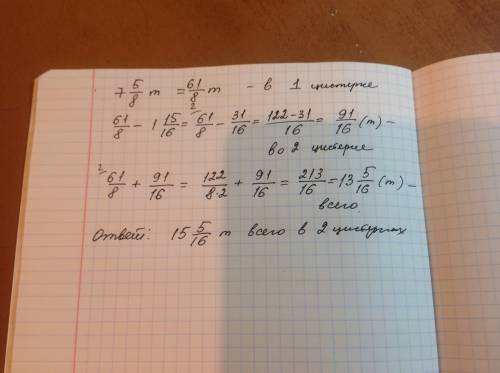 7 5/8 т = 61/8 т - в 1 цистерне
61/8 - 1 15/16 = 61/8 - 31/16 = 122-31/16 = 91/16 (т) -
во 2 цистерне
61/8 + 91/16 = 122/8·2 + 91/16 = 213/16 = 13 5/16 (т) -
всего.
Ответ: 15 5/16 т всего в 2 цистернах